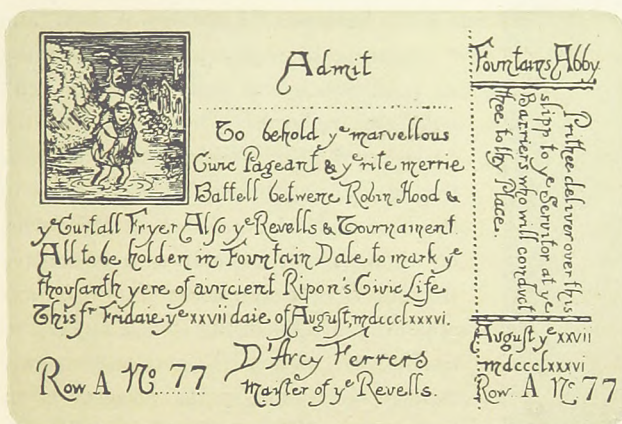 Admit
To behold yᵉ marvellous
Civic Pageant & yᵉ rite merrie
Battell betwene Robin Hood &
yᵉ Curtall Fryer Also yᵉ Revells & Tournament
All to be holden in Fountain Dale to mark yᵉ
thousanth yere of auncient Ripon's Civic Life
This fʳ Fridaie yᵉ xxvii daie of August, mdccclxxxvi.
D'Arcy Ferrers
Maister of yᵉ Revells.
Row A Nº 77
Fountains Abby
Prithee deliver over this
slipp to yᵉ Servitor at yᵉ
Barriers who will conduct
thee to thy Place.
August yᵉ xxvii
mdccclxxxvi
Row A Nº 77